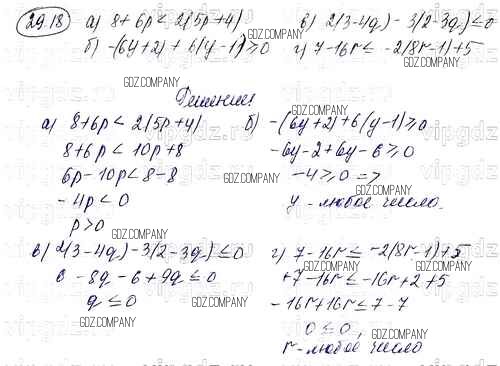 29.18 а) 8+6p < 2(5p+4) в) 2(3-4q)-3(2-3q) ≤ 0
б) -(6y+2)+6(y-1) ≥ 0 г) 7-16r ≤ -2(8r-1)+5
GDZ.COMPANY
GDZ.COMPANY
Решение:
а) 8+6p < 2(5p+4) б) -(6y+2)+6(y-1) ≥ 0
8+6p < 10p+8 -6y-2+6y-6 ≥ 0
6p-10p < 8-8 -4 ≥ 0 =>
-4p < 0 y - любое число.
p > 0
GDZ.COMPANY
GDZ.COMPANY
в) 2(3-4q)-3(2-3q) ≤ 0 г) 7-16r ≤ -2(8r-1)+5
6-8q-6+9q ≤ 0 +7-16r ≤ -16r+2+5
q ≤ 0 -16r+16r ≤ 7-7
0 ≤ 0,
r - любое число
GDZ.COMPANY
GDZ.COMPANY
GDZ.COMPANY
GDZ.COMPANY